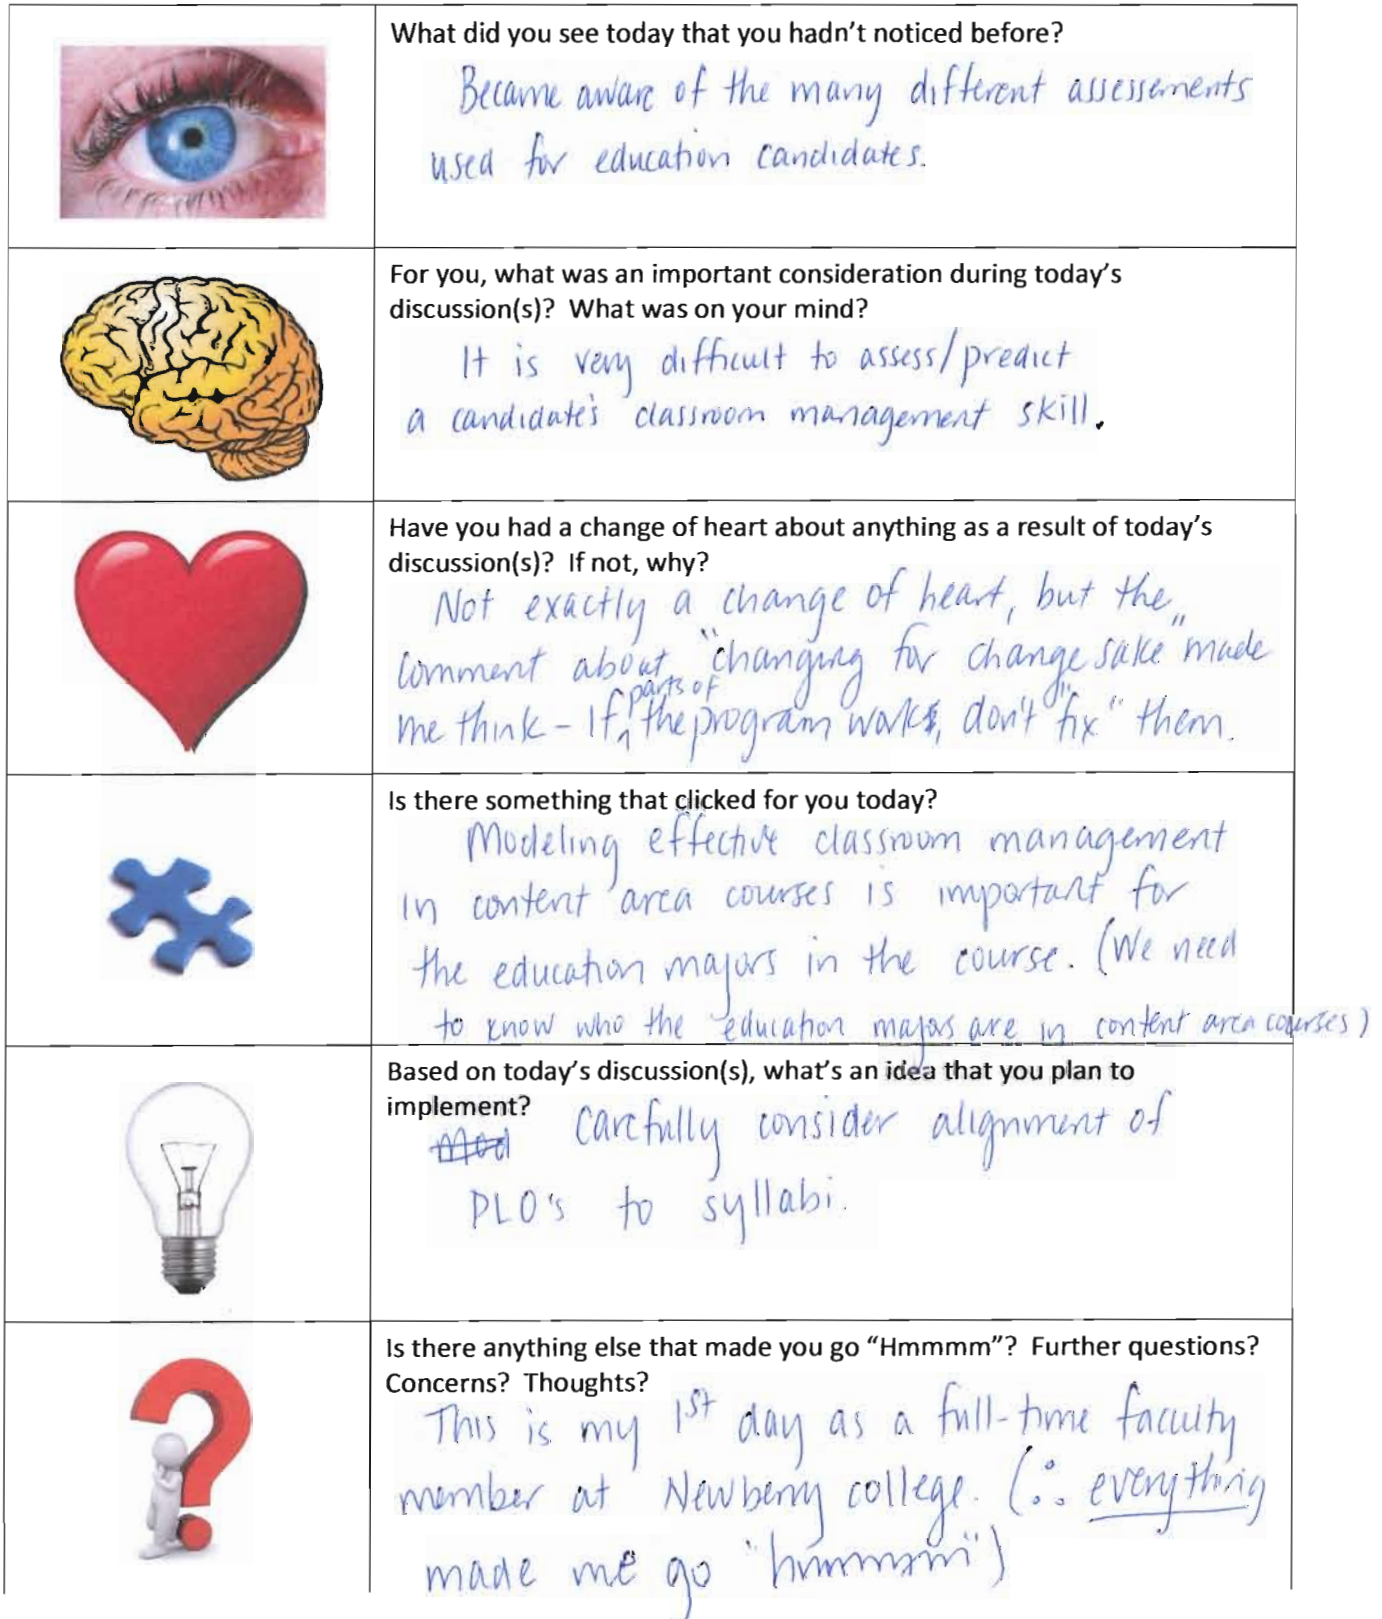 What did you see today that you hadn't noticed before?
Became aware of the many different assessements
used for education candidates.
For you, what was an important consideration during today's
discussion(s)?  What was on your mind?
It is very difficult to assess/predict
a candidate's classroom management skill.
Have you had a change of heart about anything as a result of today's
discussion(s)?  If not, why?
Not exactly a change of heart, but the
comment about "changing for change sake" made
parts of
me think - If the program works, don't "fix" them.
Is there something that clicked for you today?
Modeling effective classroom management
in content area courses is important for
the education majors in the course. (We need
to know who the education majors are in content area courses)
Based on today's discussion(s), what's an idea that you plan to
implement?
Mod Carefully consider alignment of
PLO's to syllabi.
Is there anything else that made you go “Hmmmm”?  Further questions?
Concerns?  Thoughts?
This is my 1st day as a full-time faculty
member at Newberry college. (∴ everything
made me go "hmmmm")